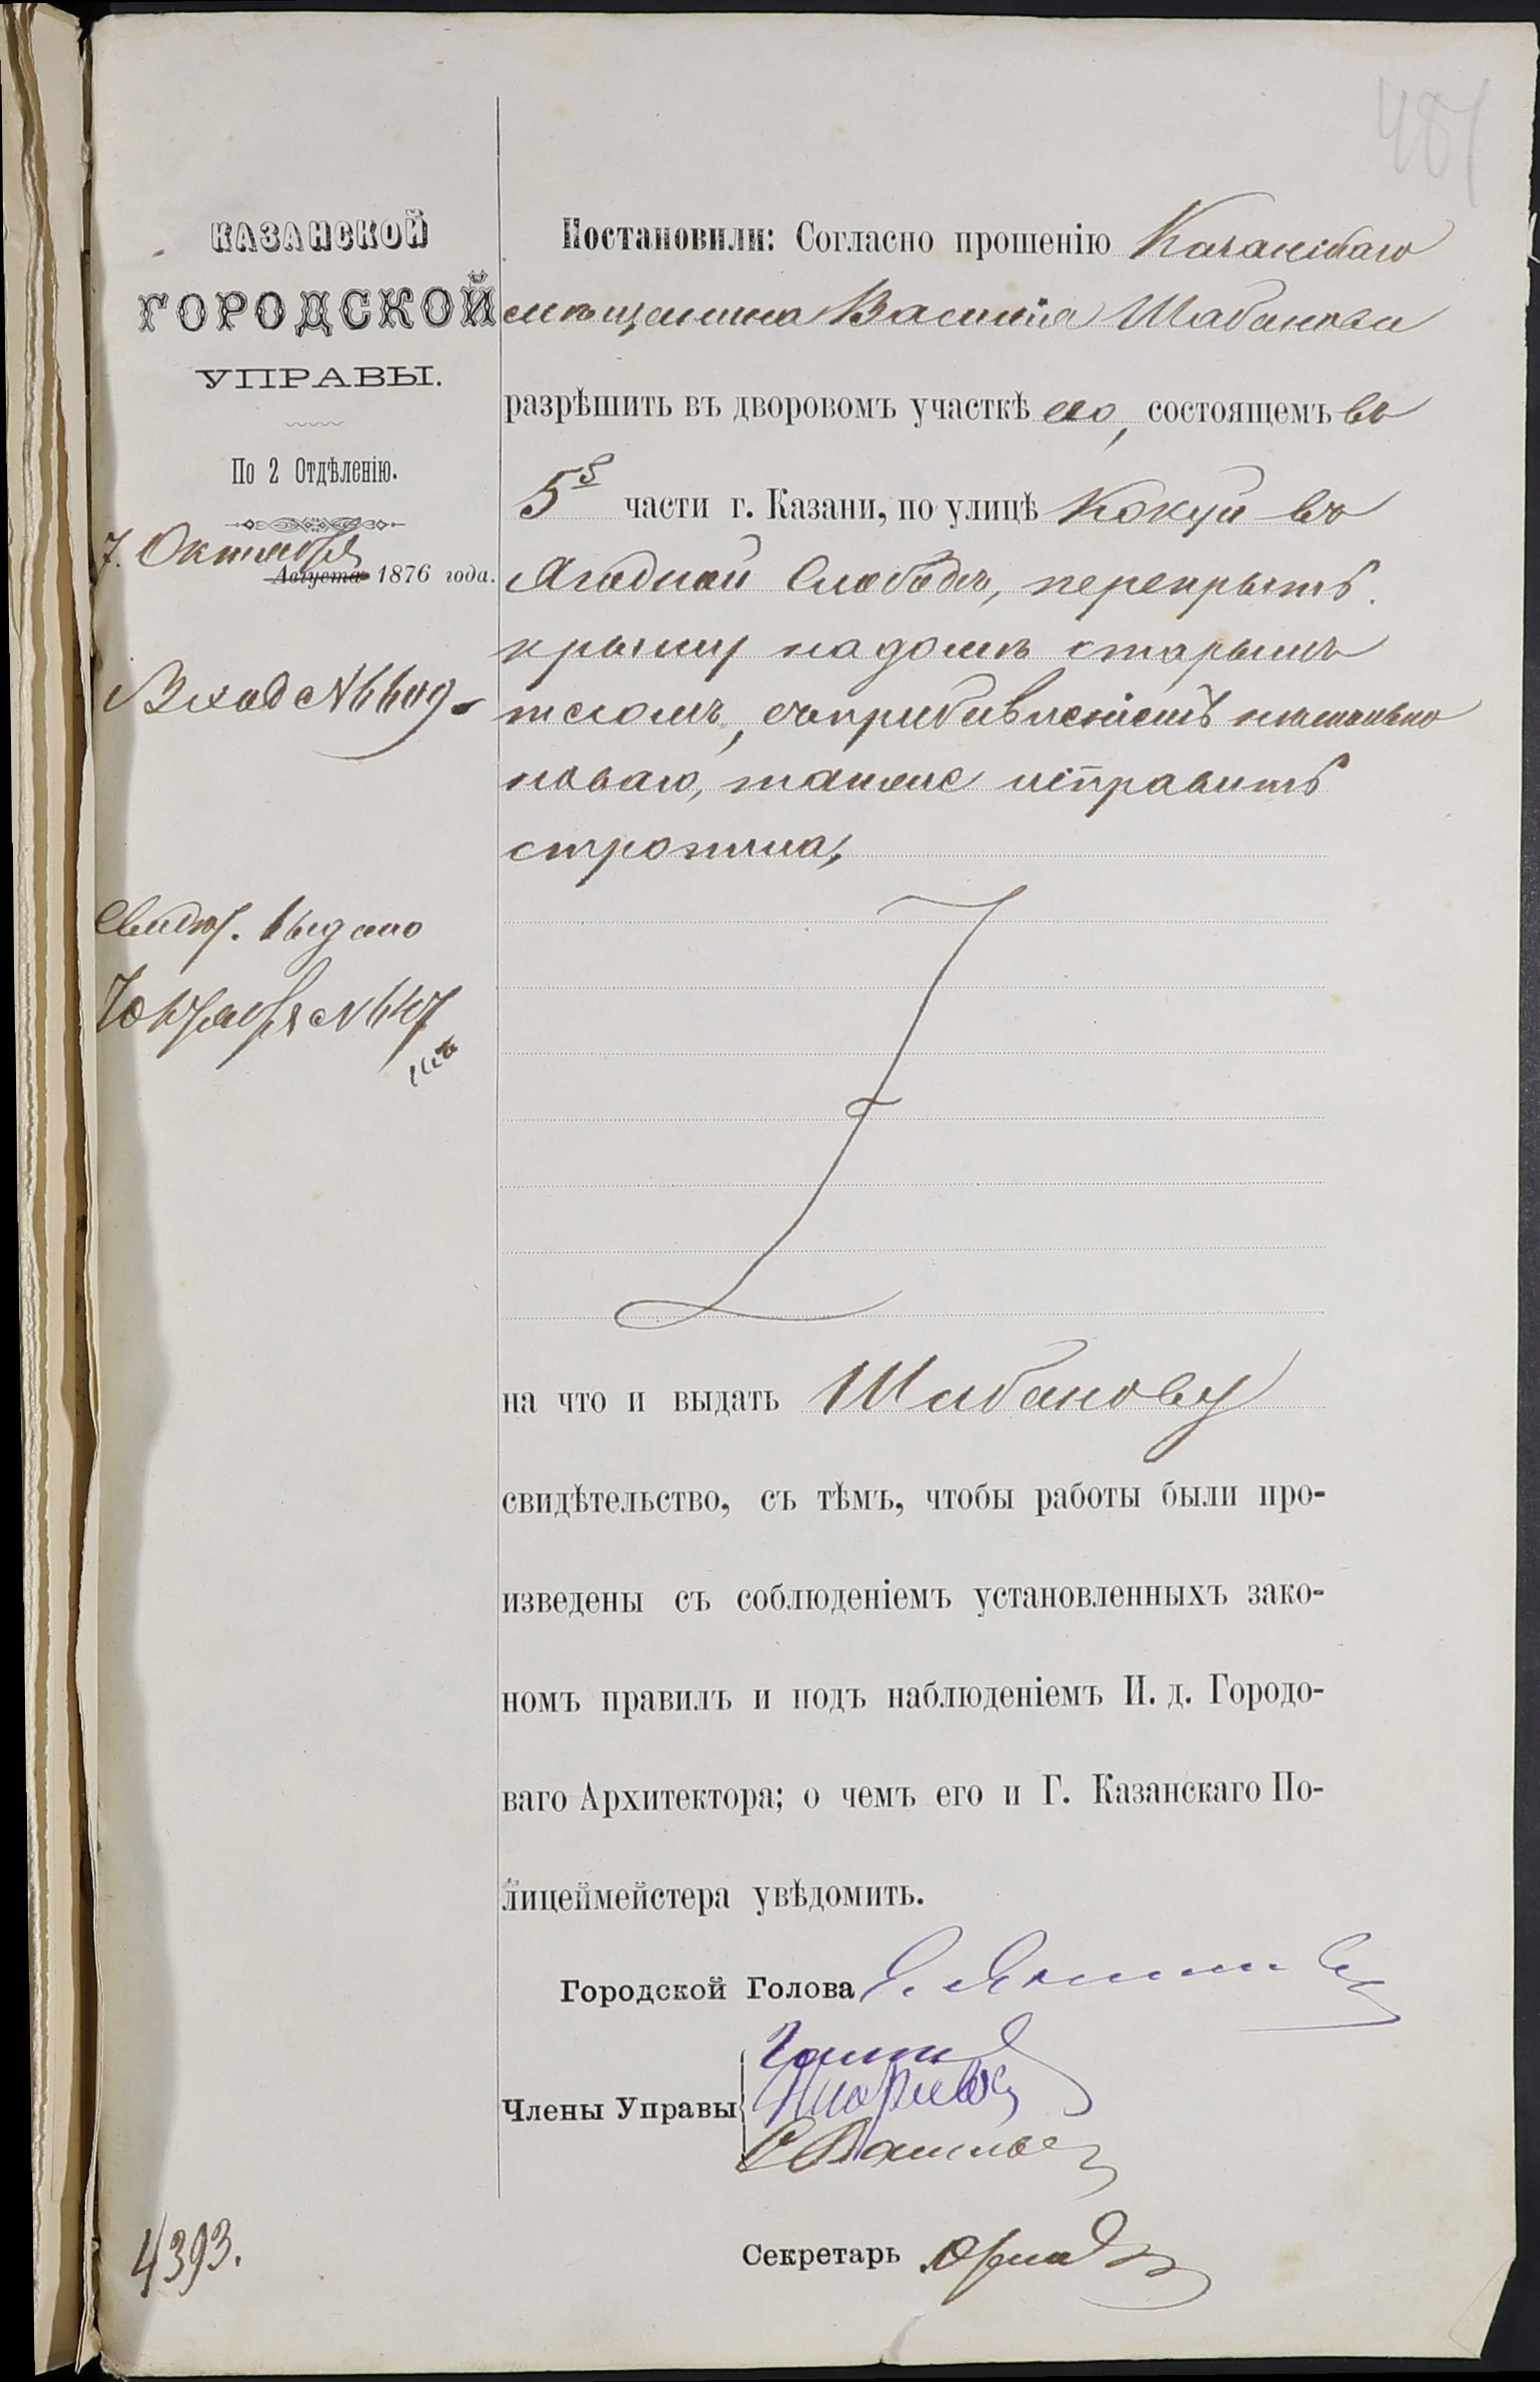 481
КАЗАНСКОЙ
ГОРОДСКОЙ
УПРАВЫ.
По 2 Отдѣленію.
7. Октября
Августа 1876 года.
Вход №6609
Свидѣт. выдано
7 Октября №
4393.
Постановили: Согласно прошенію Казанскаго
мѣщанина Василія Шабанова
разрѣшить въ дворовомъ участкѣ его, состоящемъ въ
5й части г. Казани, по улицѣ Кокуй въ
Ягодной Слободѣ, перекрыть
крышу на домѣ старымъ
тесомъ, съ прибавленіемъ нѣсколько
новаго, также исправить
стропила,
на что и выдать Шабанову
свидѣтельство, съ тѣмъ, чтобы работы были про-
изведены съ соблюденіемъ установленныхъ зако-
номъ правилъ и подъ наблюденіемъ И. д. Городо-
ваго Архитектора; о чемъ его и Г. Казанскаго По-
лицеймейстера увѣдомить.
Городской Голова
Члены Управы
Секретарь